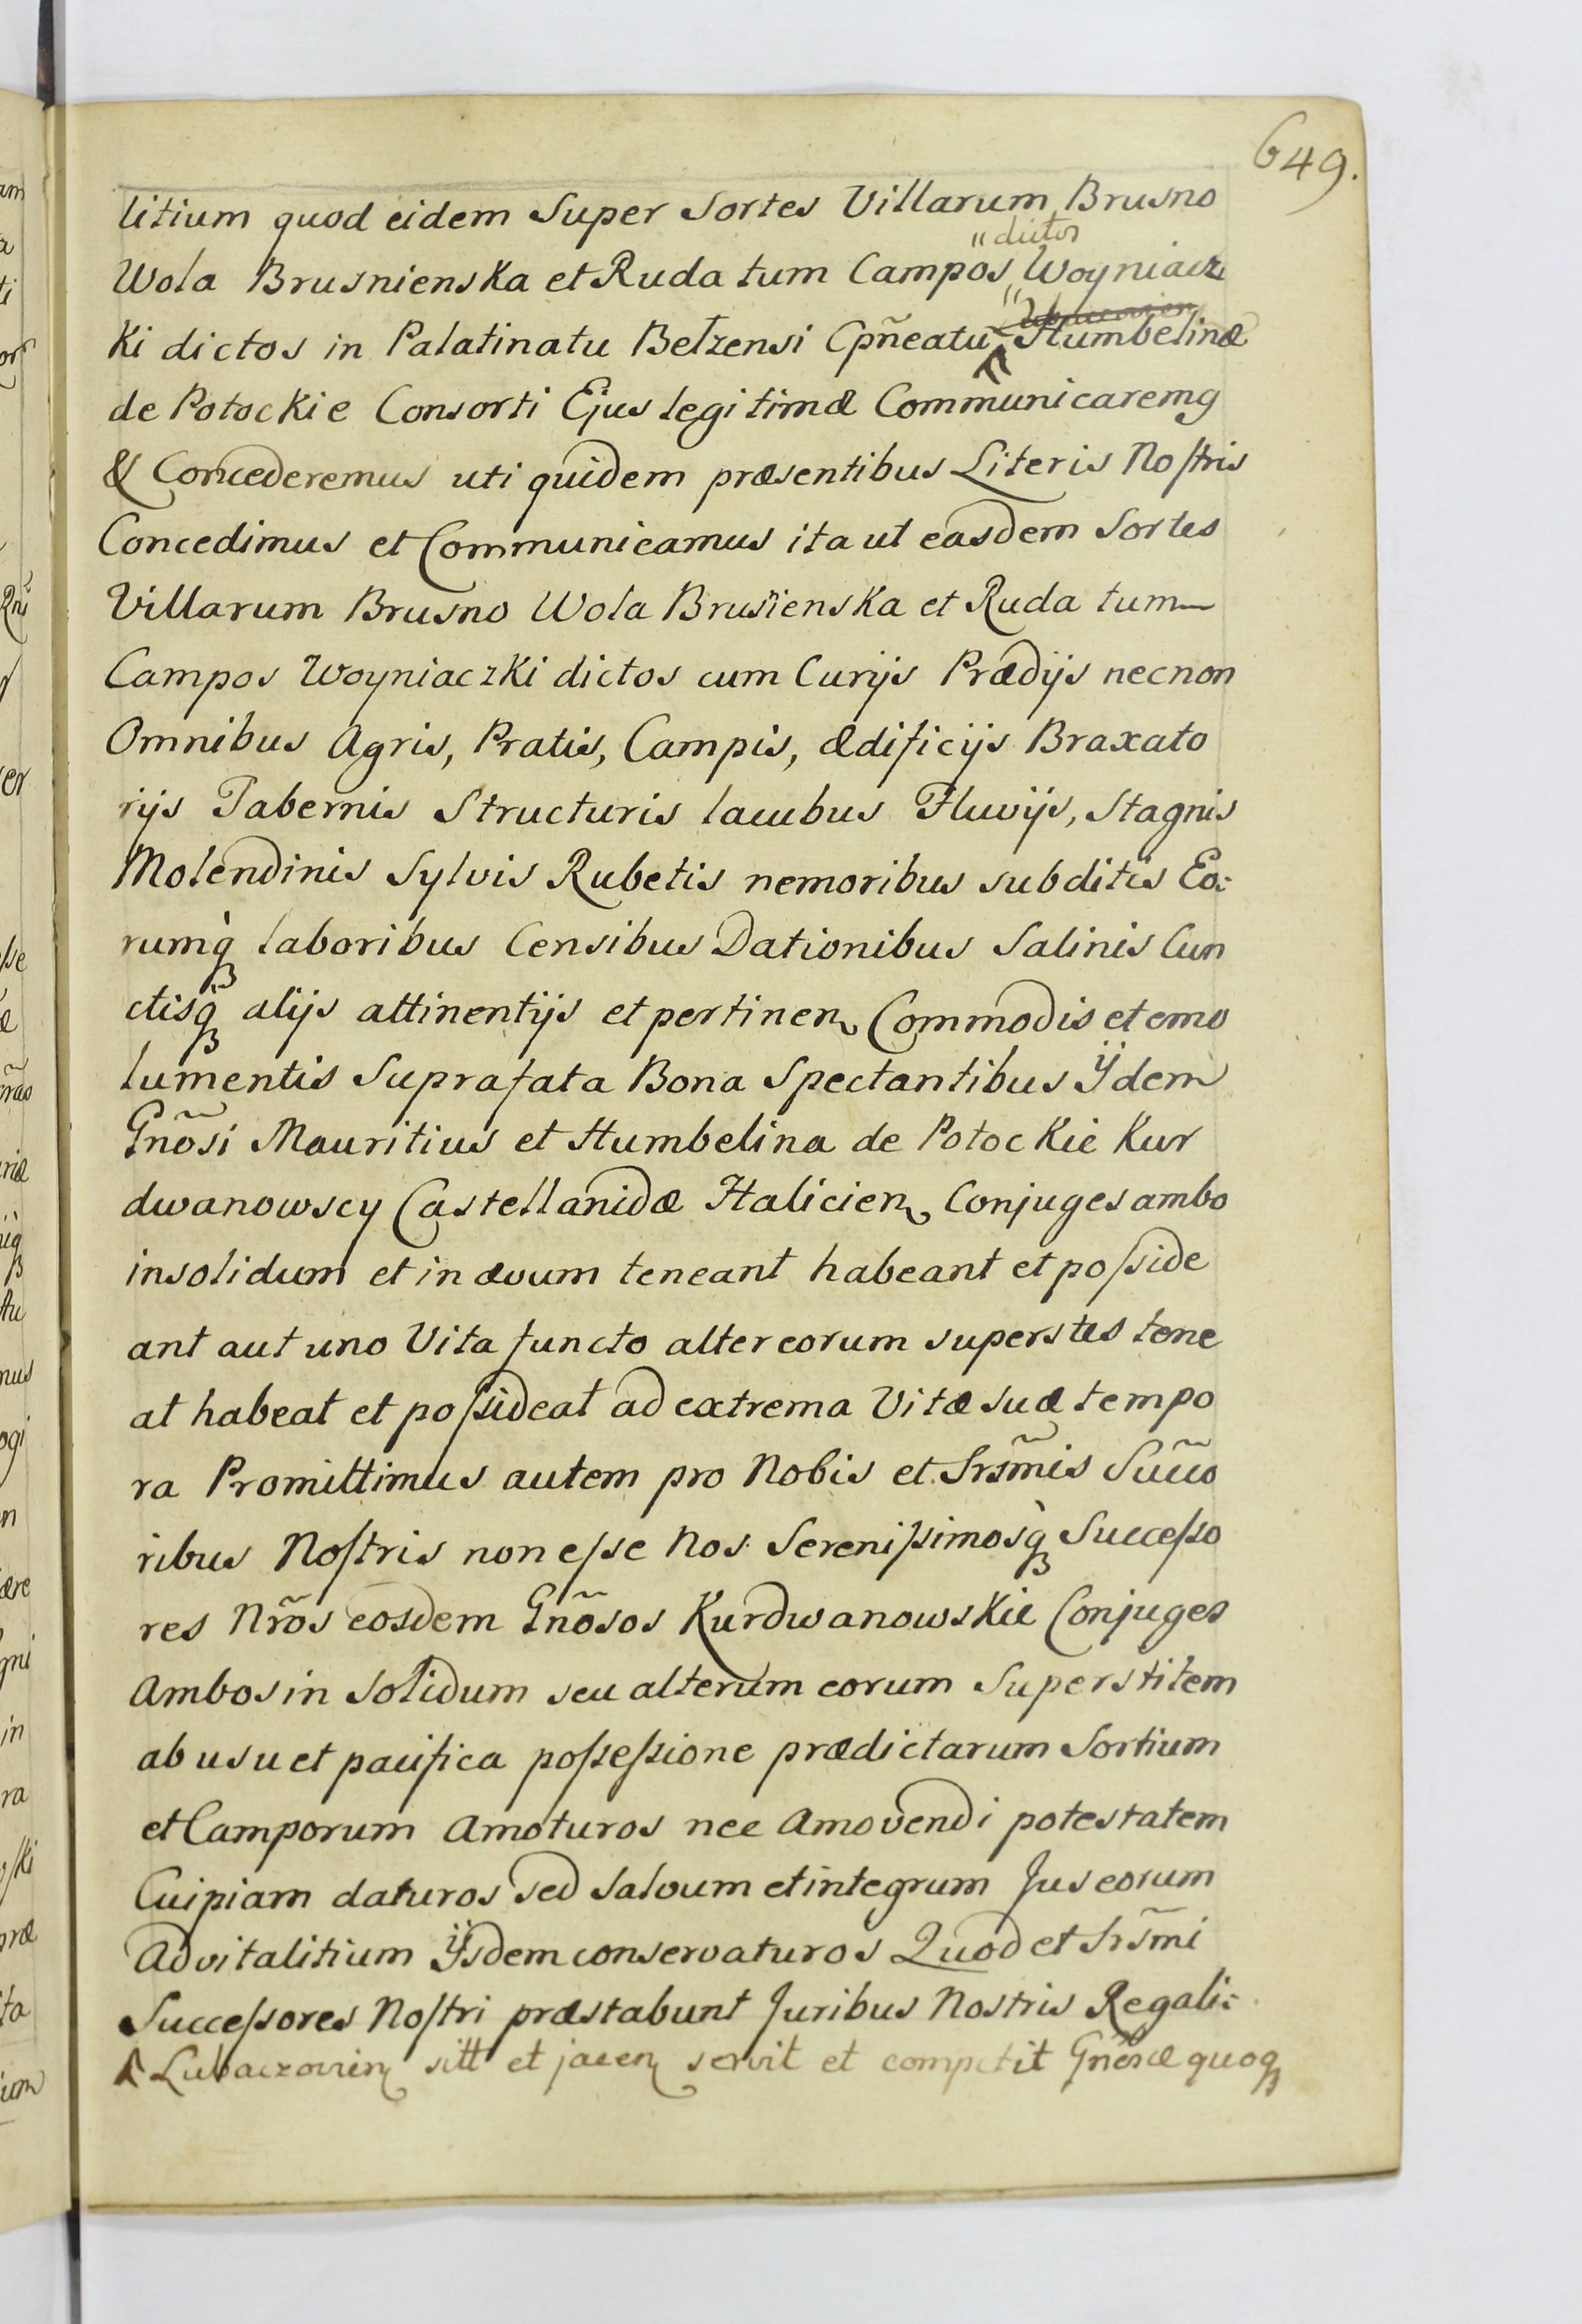 649.
litium quod eidem Super Sortes Villarum Brusno
"dictos
Wola Brusnienska et Ruda tum Campos Woyniacz
Ki dictos in Palatinatu Belzensi Cpñeatu Humbelinæ
de Potockie Consorti Ejus legitimæ Communicaremg
& Concederemus uti quidem præsentibus Literis Nostris
Concedimus et Communicamus ita ut easdem Sortes
Villarum Brusno Wola Brusñienska et Ruda tum
Campos Woyniaczki dictos cum Curijs Prædijs necnon
Omnibus Agris, Pratis, Campis, ædificijs Braxato
rijs Tabernis Structuris lacubus Fluvijs, Stagnis
Molendinis Sylvis Rubetis nemoribus subditis Eo:
rumq̀ laboribus Censibus Dationibus Salinis Cun
ctisq̀ alijs attinentijs et pertinen Commodis et emo
lumentis Suprafata Bona Spectantibus Ÿdem
Gnõsi Mauritius et Humbelina de Potockie Kur
dwanowscy Castellanidæ Halicien Conjuges ambo
insolidum et in ævum teneant habeant et posside
ant aut uno Vita functo alter eorum superstes tene
at habeat et possideat ad extrema Vitæ suæ tempo
ra Promittimus autem pro Nobis et Srsm̃is Suc̃co
ribus Nostris non esse Nos Serenissimosq̀ Successo
res Nrõs eosdem Gnõsos Kurdwanowskie Conjuges
Ambos in Solidum seu alterum eorum Superstitem
ab usu et pacifica possessione prædictarum Sortium
et Camporum Amoturos nec Amovendi potestatem
Cuipiam daturos sed Salvum et integrum Jus eorum
Advitalitium Ÿsdem conservaturos Quod et Srsm̃i
Successores Nostri præstabunt Juribus Nostris Regali:
Lubaczovien sitt et jacen servit et competit Gneosæ quoq